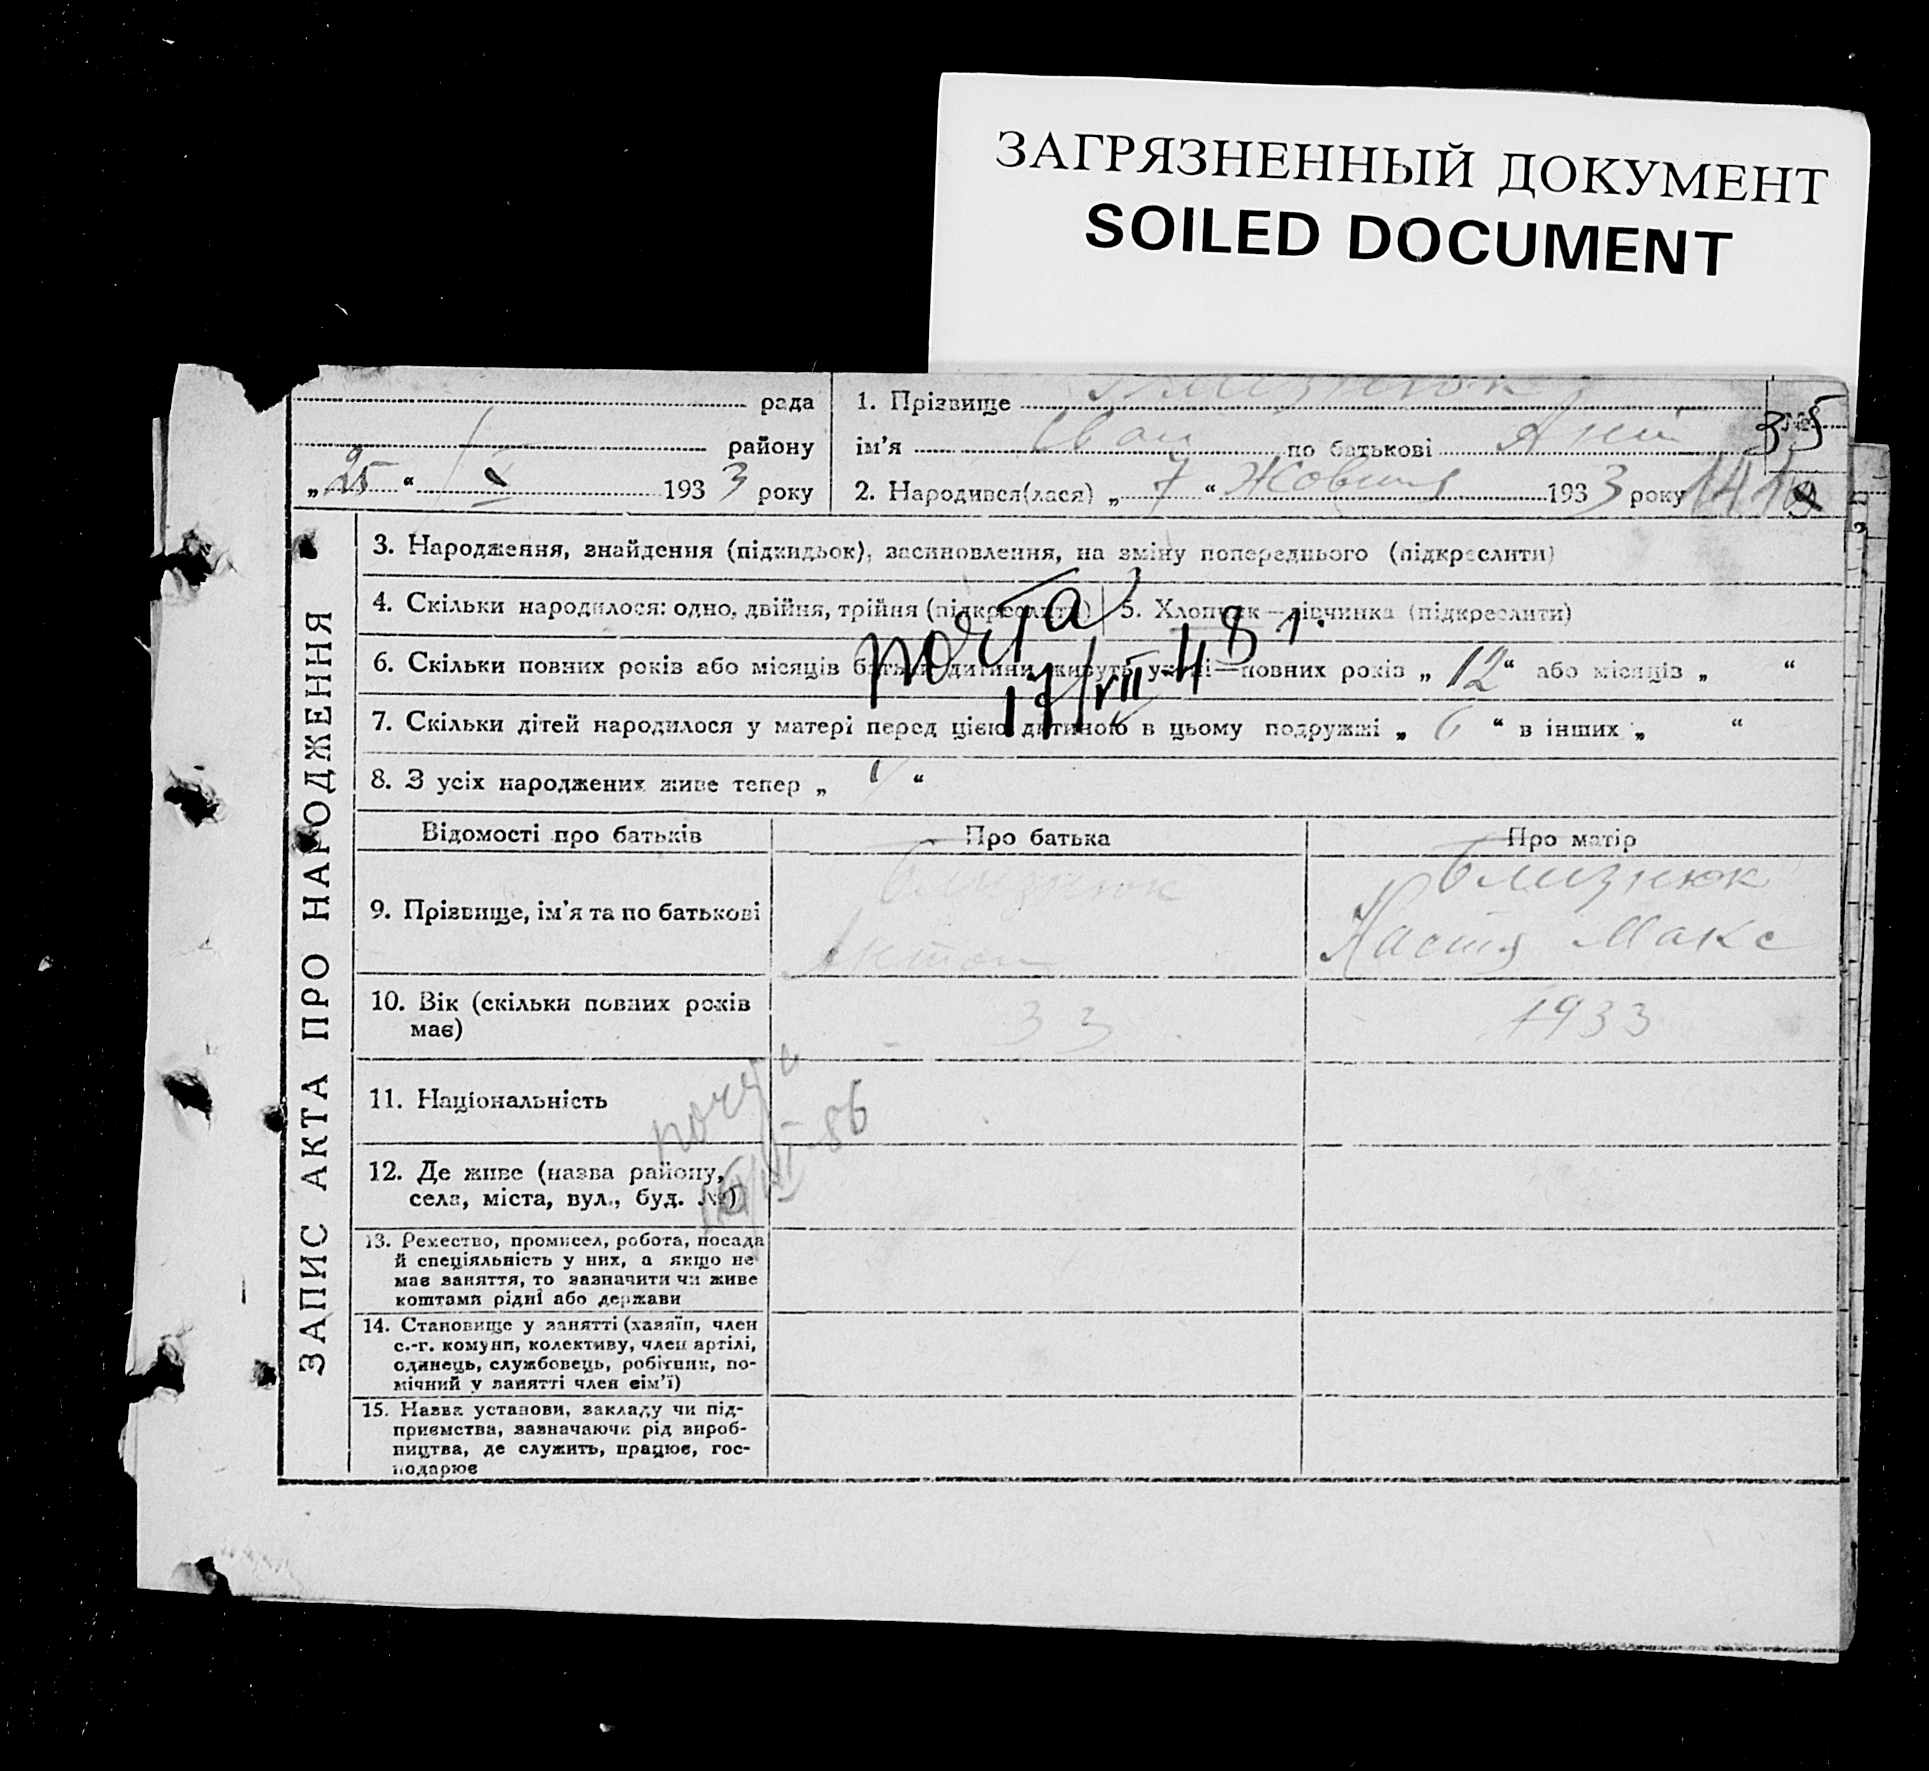 ЗАГРЯЗНЕННЫЙ ДОКУМЕНТ
SOILED DOCUMENT
рада
району
„25“ X 1933 року
1. Прізвище Близнюк
ім'я Іван по батькові Ант
2. Народився(лася) „7“ Жовтня 1933 року
35
ЗАПИС АКТА ПРО НАРОДЖЕННЯ
3. Народження, знайдення (підкидьок), засиновлення, на зміну попереднього (підкреслити)
4. Скільки народилося: одно, двійня, трійня (підкреслити) 5. Хлопчик—дівчинка (підкреслити)
почта
17/VII-48 г.
6. Скільки повних років або місяців батьки дитини живуть укупі—повних років „12“ або місяців „ “
7. Скільки дітей народилося у матері перед цією дитиною в цьому подружжі „6“ в інших „ “
8. З усіх народжених живе тепер „ “
Відомості про батьків Про батька Про матір
9. Прізвище, ім'я та по батькові
Близнюк
Антон
Близнюк
Настя Макс
10. Вік (скільки повних років
має)
33
1933
11. Національність
почта
12. Де живе (назва району,
села, міста, вул., буд. №)
13. Ремество, промисел, робота, посада
й спеціяльність у них, а якщо не
має заняття, то зазначити чи живе
коштами рідні або держави
14. Становище у занятті (хазяїн, член
с.-г. комуни, колективу, член артілі,
одинець, службовець, робітник, по-
мічний у занятті член сім'ї)
15. Назва установи, закладу чи під-
приємства, зазначаючи рід вироб-
ництва, де служить, працює, гос-
подарює